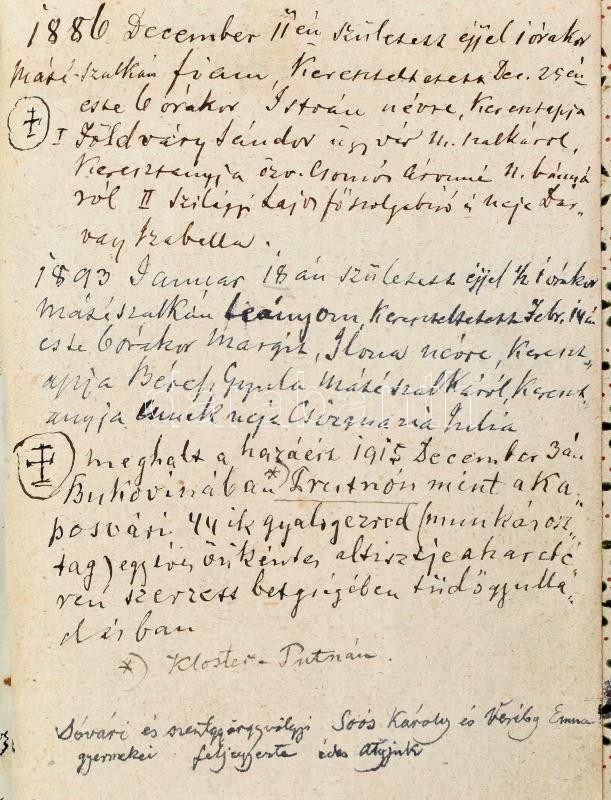 1886 December 11én született éjjel 1 órakor
Máté-szalkán fiam, Kereszteltetett Dec. 25én
este 6 órakor István névre, Keresztapja
I Földváry Sándor ügyvéd M. szalkáról,
Keresztanyja özv. Csomós Áronné N. bányá
ról II Szilágyi Lajos főszolgabíró és neje Dar„
vay Izabella.
1893 Januar 18án született éjjel 1/2 1 órakor
Mátészalkán leányom, Kereszteltetett Febr. 14én
este 6 órakor Margit, Ilona névre, Kereszt„
apja Gyula Mátészalkáról, Kereszt„
anyja ennek neje Julia
meghalt a hazáért 1915 December 3án
Bukovinában *) Frutnón mint a Ka„
posvári 44ik gyalogezred (munkás osz„
tag) egyéves önkéntes altisztje a harcté„
ren szerzett betegségében tüdőgyulla„
dásban
*) Kloster-Putnán.
Sóvári és szentgyörgyvölgyi Soós Károly és Veréby Emma
gyermekei feljegyezte édes atyjuk